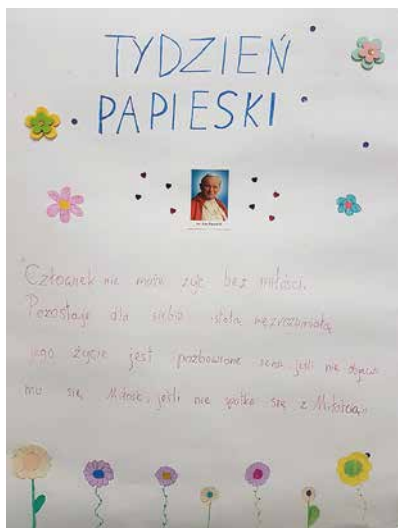 TYDZIEŃ
PAPIESKI
Człowiek nie może żyć bez miłości.
Pozostaje dla siebie istotą niezrozumiałą
jego życie jest pozbawione sensu jeśli nie
mu się Miłość, jeśli nie spotka się z Miłością